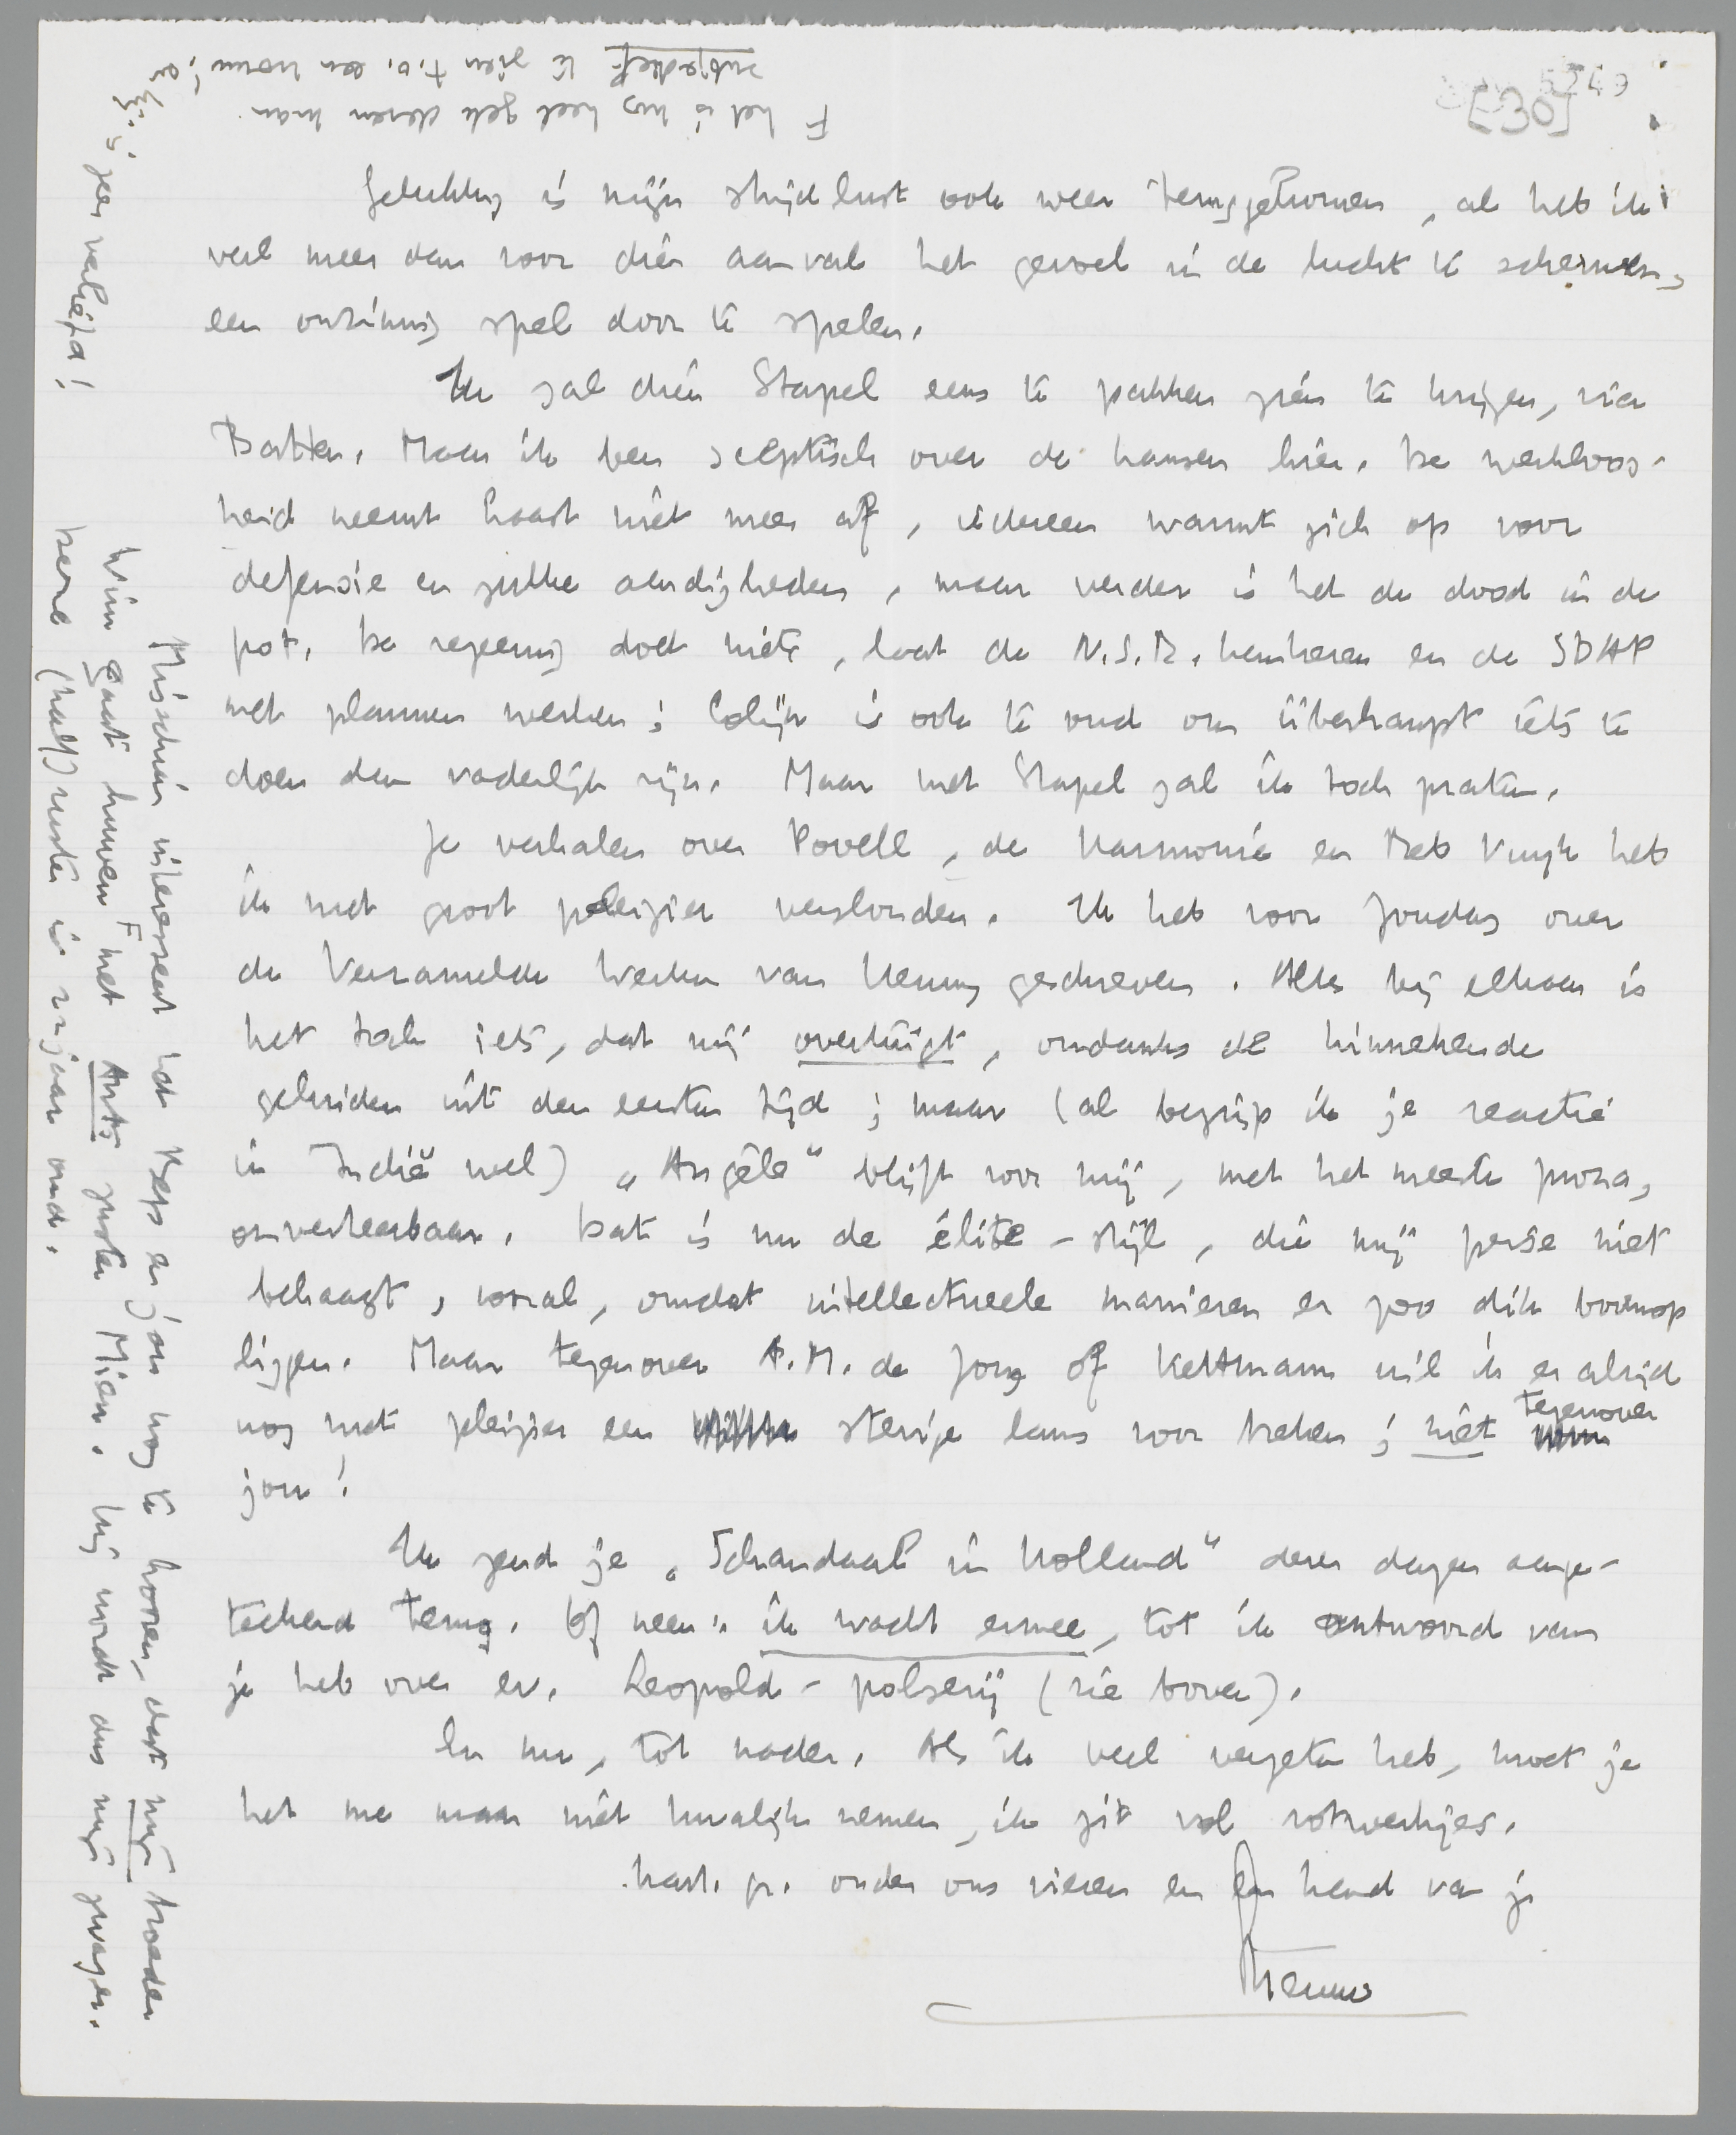 5249
[30]
Gelukkig is mijn strijdlust ook weer teruggekomen, al heb ik
veel meer dan voor dien aanval het gevoel in de lucht te schermen,
een onzinnig spel door te spelen.
Ik zal dien Stapel eens te pakken zien te krijgen, via
Batten. Maar ik ben sceptisch over de kansen hier. De werkloos-
heid neemt haast niet meer af, iedereen warmt zich op voor
defensie en zulke aardigheden, maar verder is het de dood in de
pot. De regeering doet niets, laat de N.S.B. kankeren en de SDAP
met plannen werken; Colijn is ook te oud om überhaupt iets te
doen dan vaderlijk zijn. Maar met Stapel zal ik toch praten.
Je verhalen over Povell, de Harmonie en Beb Vuyk heb
ik met groot pleizier verslonden. Ik heb voor Zondag over
de Verzamelde Werken van Henny geschreven. Alles bij elkaar is
het toch iets, dat mij overtuigt, ondanks de hinnekende
geluiden uit den eersten tijd; maar (al begrijp ik je reactie
in Indië wel) „Angèle" blijft voor mij, met het meeste proza,
onverteerbaar. Dat is nu de élite-stijl, die mij per se niet
behaagt, vooral, omdat intellectueele manieren er zoo dik bovenop
liggen. Maar tegenover A.M. de Jong of Kettmann wil ik er altijd
nog met pleizier een stevige lans voor breken; niet tegenover
jou!
Ik zend je „Schandaal in Holland" dezer dagen aange-
teekend terug. Of neen: ik wacht ermee, tot ik antwoord van
je heb over ev. Leopold-polserij (zie boven).
En nu, tot nader. Als ik veel vergeten heb, moet je
het me maar niet kwalijk nemen, ik zit vol rotwerkjes.
Hart. gr. onder ons vieren en een hand van je
Menno
Misschien interesseert het Bep en jou nog te hooren, dat mijn broeder
Wim gaat trouwen F met Ants zuster Mien. Hij wordt dus mijn zwager.
Deze (half)zuster is vijftien jaar oud.
F het is nog heel gek dezen man
subjectief te zien t.o. een vrouw; en
hij is zeer verliefd!